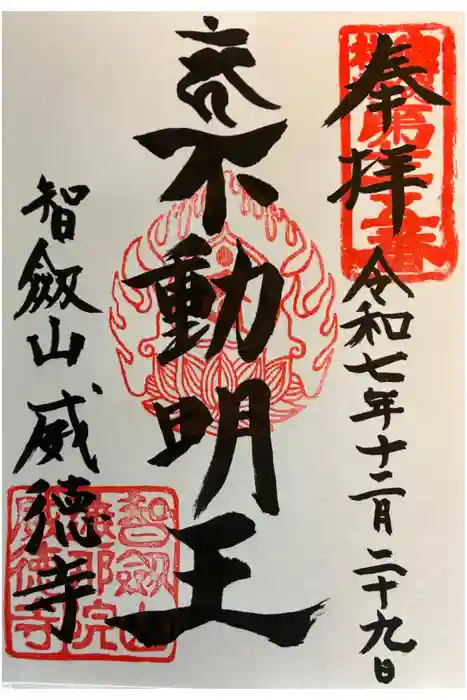 奉拝
令和七年十二月二十九日
不動明王
智劔山威徳寺
智劔山
遮那院
威徳寺